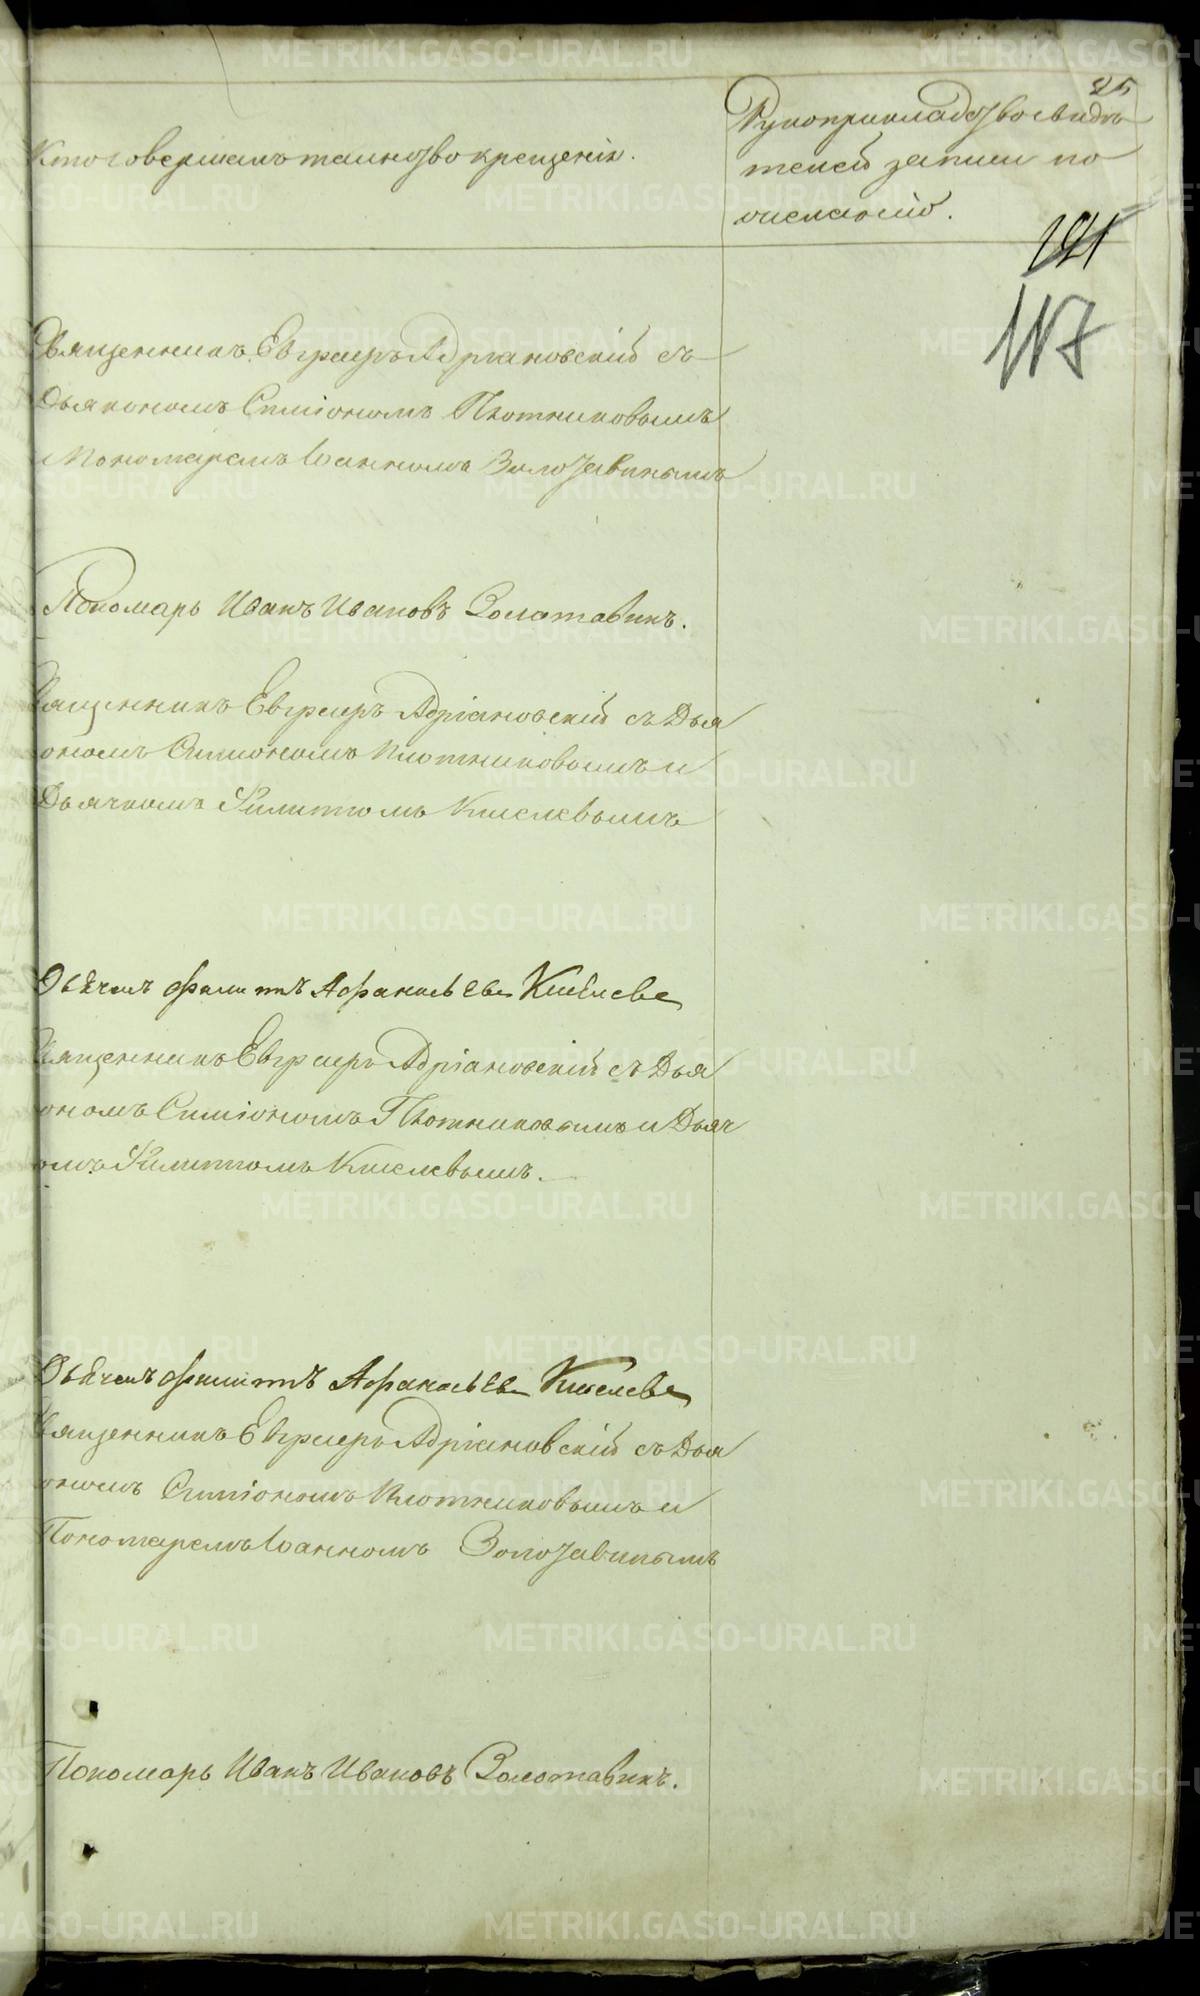 25
Кто совершалъ таинство крещенія.
Рукоприкладство свидѣ
телей записи по
желанію.
121
117
Священникъ Евграфъ Адріановскій съ
Дьякономъ Симіономъ Плотниковымъ
Пономаремъ Іоанномъ Золотавинымъ
Пономарь Иванъ Ивановъ Золотавинъ.
Священникъ Евграфъ Адріановскій съ Дья
кономъ Симіономъ Плотниковымъ и
Дьячкомъ Филиппомъ Киселевымъ
Дьячекъ Филиппъ Афанасьевъ Киселевъ
Священникъ Евграфъ Адріановскій съ Дья
кономъ Симіономъ Плотниковымъ и Дьяч
комъ Филиппомъ Киселевымъ.
Дьячекъ Филиппъ Афанасьевъ Киселевъ
Священникъ Евграфъ Адріановскій съ Дья
кономъ Симіономъ Плотниковымъ и
Пономаремъ Іоанномъ Золотавинымъ
Пономарь Иванъ Ивановъ Золотавинъ.
METRIKI.GASO-URAL.RU